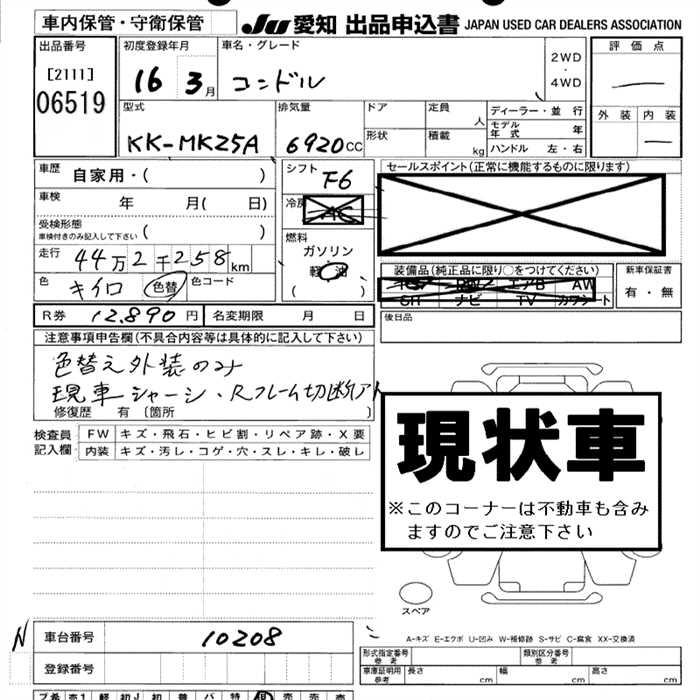 車内保管・守衛保管
JU 愛知 出品申込書 JAPAN USED CAR DEALERS ASSOCIATION
出品番号
[2111]
06519
初度登録年月
16 3月
車名・グレード
コンドル
2WD
・
4WD
評価点
外装 内装
型式
KK-MK25A
排気量
6920cc
ドア
形状
定員
人
積載
kg
ディーラー・並行
モデル年式 年
ハンドル 左・右
車歴
自家用・( )
車検 年 月( 日)
受検形態
車検付きのみ記入して下さい ( )
走行 44万2千258km
色 キイロ 色替 色コード
シフト
F6
冷房
AC
燃料
ガソリン
軽油
( )
セールスポイント(正常に機能するものに限ります)
装備品(純正品に限り○をつけてください)
エアB AW
SR ナビ TV カワシート
新車保証書
有・無
R券 12.890円 名変期限 月 日
後日品
注意事項申告欄(不具合内容等は具体的に記入して下さい)
色替え外装のみ
現車シャーシ・Rフレーム切断アト
修復歴 有〔箇所 〕
検査員記入欄
FW キズ・飛石・ヒビ割・リペア跡・X要
内装 キズ・汚レ・コゲ・穴・スレ・キレ・破レ
現状車
※このコーナーは不動車も含み
ますのでご注意下さい
スペア
A-キズ E-エクボ U-凹み W-補修跡 S-サビ C-腐食 XX-交換済
N
車台番号 10208
登録番号
形式指定番号
参考
類別区分番号
参考
車庫証明用
参考
長さ cm 幅 cm 高さ cm